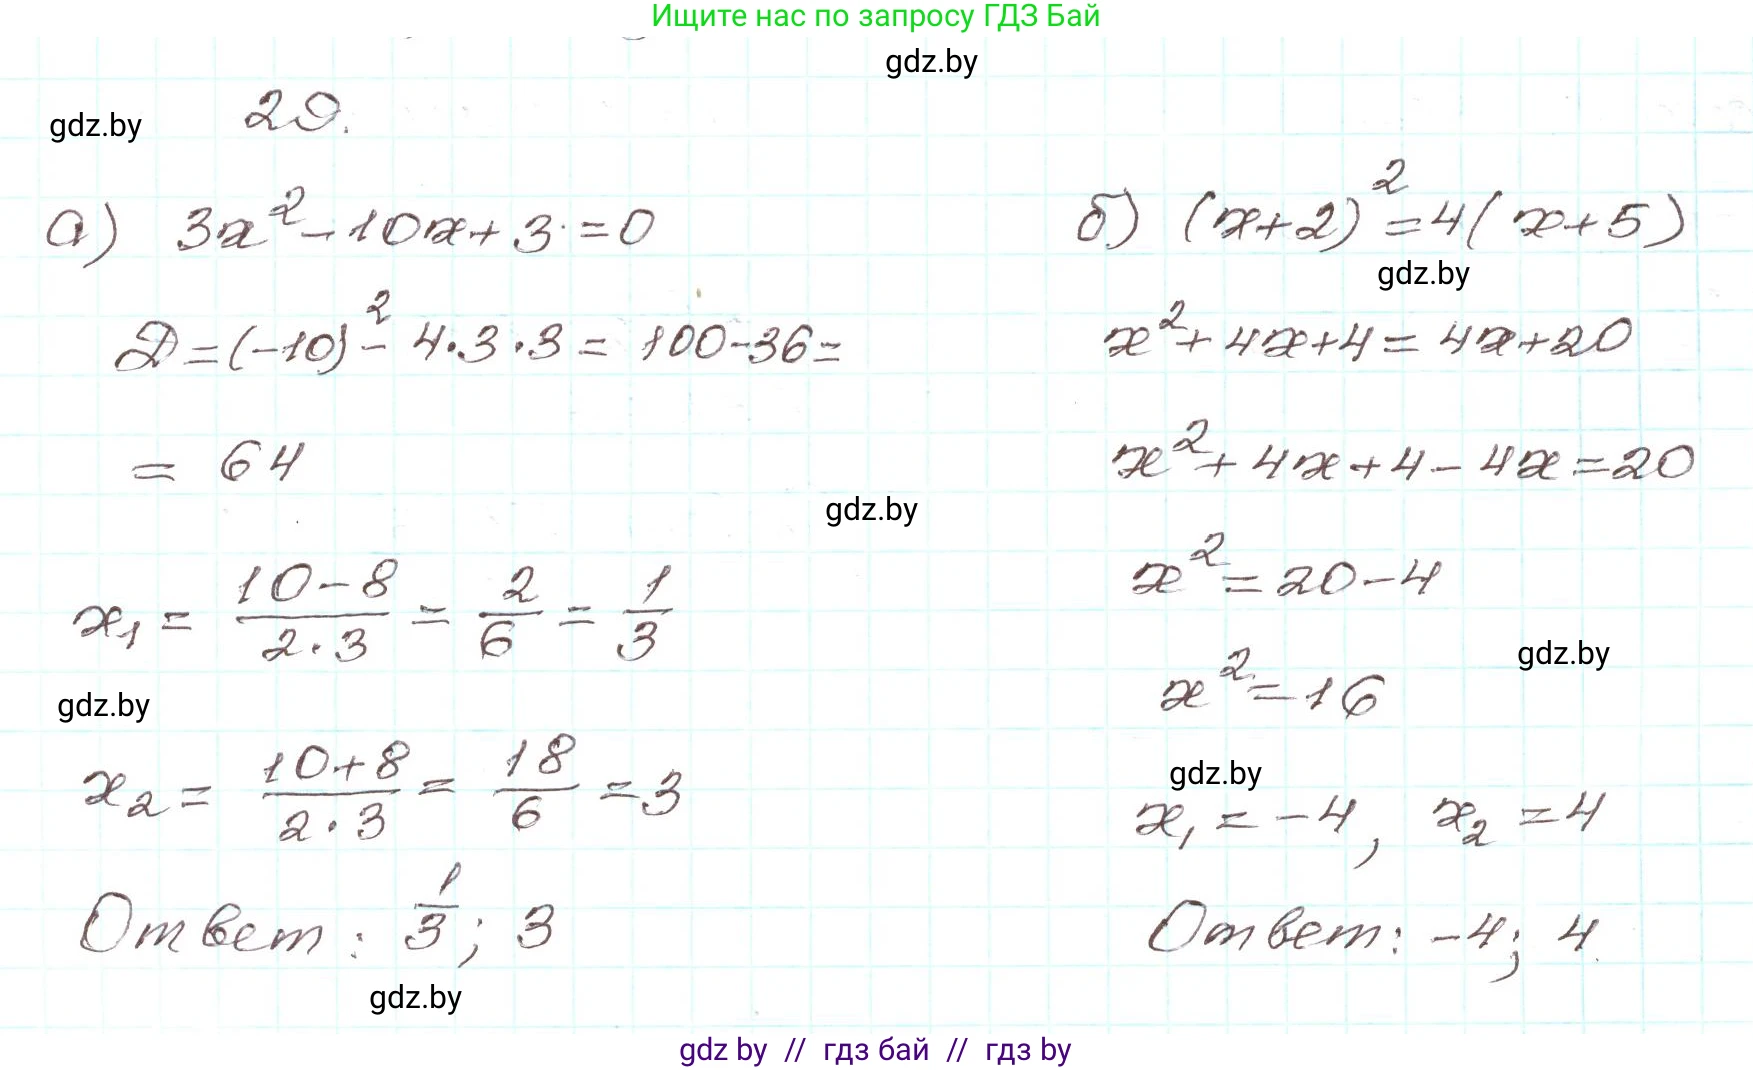 Ищите нас по запросу ГДЗ Бай
gdz.by
gdz.by
29.
а) 3x² - 10x + 3 = 0
D = (-10)² - 4·3·3 = 100 - 36 =
= 64
x₁ = (10 - 8)/(2·3) = 2/6 = 1/3
gdz.by
x₂ = (10 + 8)/(2·3) = 18/6 = 3
Ответ: 1/3; 3
gdz.by
б) (x + 2)² = 4(x + 5)
gdz.by
x² + 4x + 4 = 4x + 20
x² + 4x + 4 - 4x = 20
gdz.by
x² = 20 - 4
gdz.by
x² = 16
gdz.by
x₁ = -4, x₂ = 4
Ответ: -4; 4.
gdz by // гдз бай // гдз by